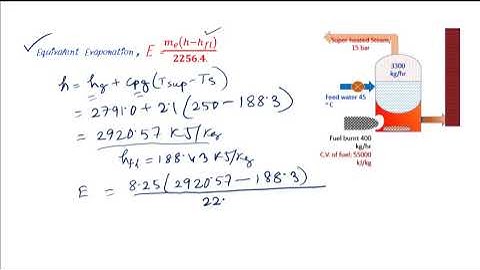 Equivalent Evaporation, E m_e(h−h_f1)
2256.4.
h = hg + cpg (Tsup − Ts)
= 2791.0 + 2.1 (250 − 188.3)
= 2920.57 KJ/Kg
h_f1 = 188.43 KJ/Kg
E = 8.25 (2920.57 − 188.3)
22.
Super heated Steam,
15 bar
3300
kg/hr
Feed water 45
°C
Fuel burnt 400
kg/hr
C.V. of fuel: 55000
kJ/kg